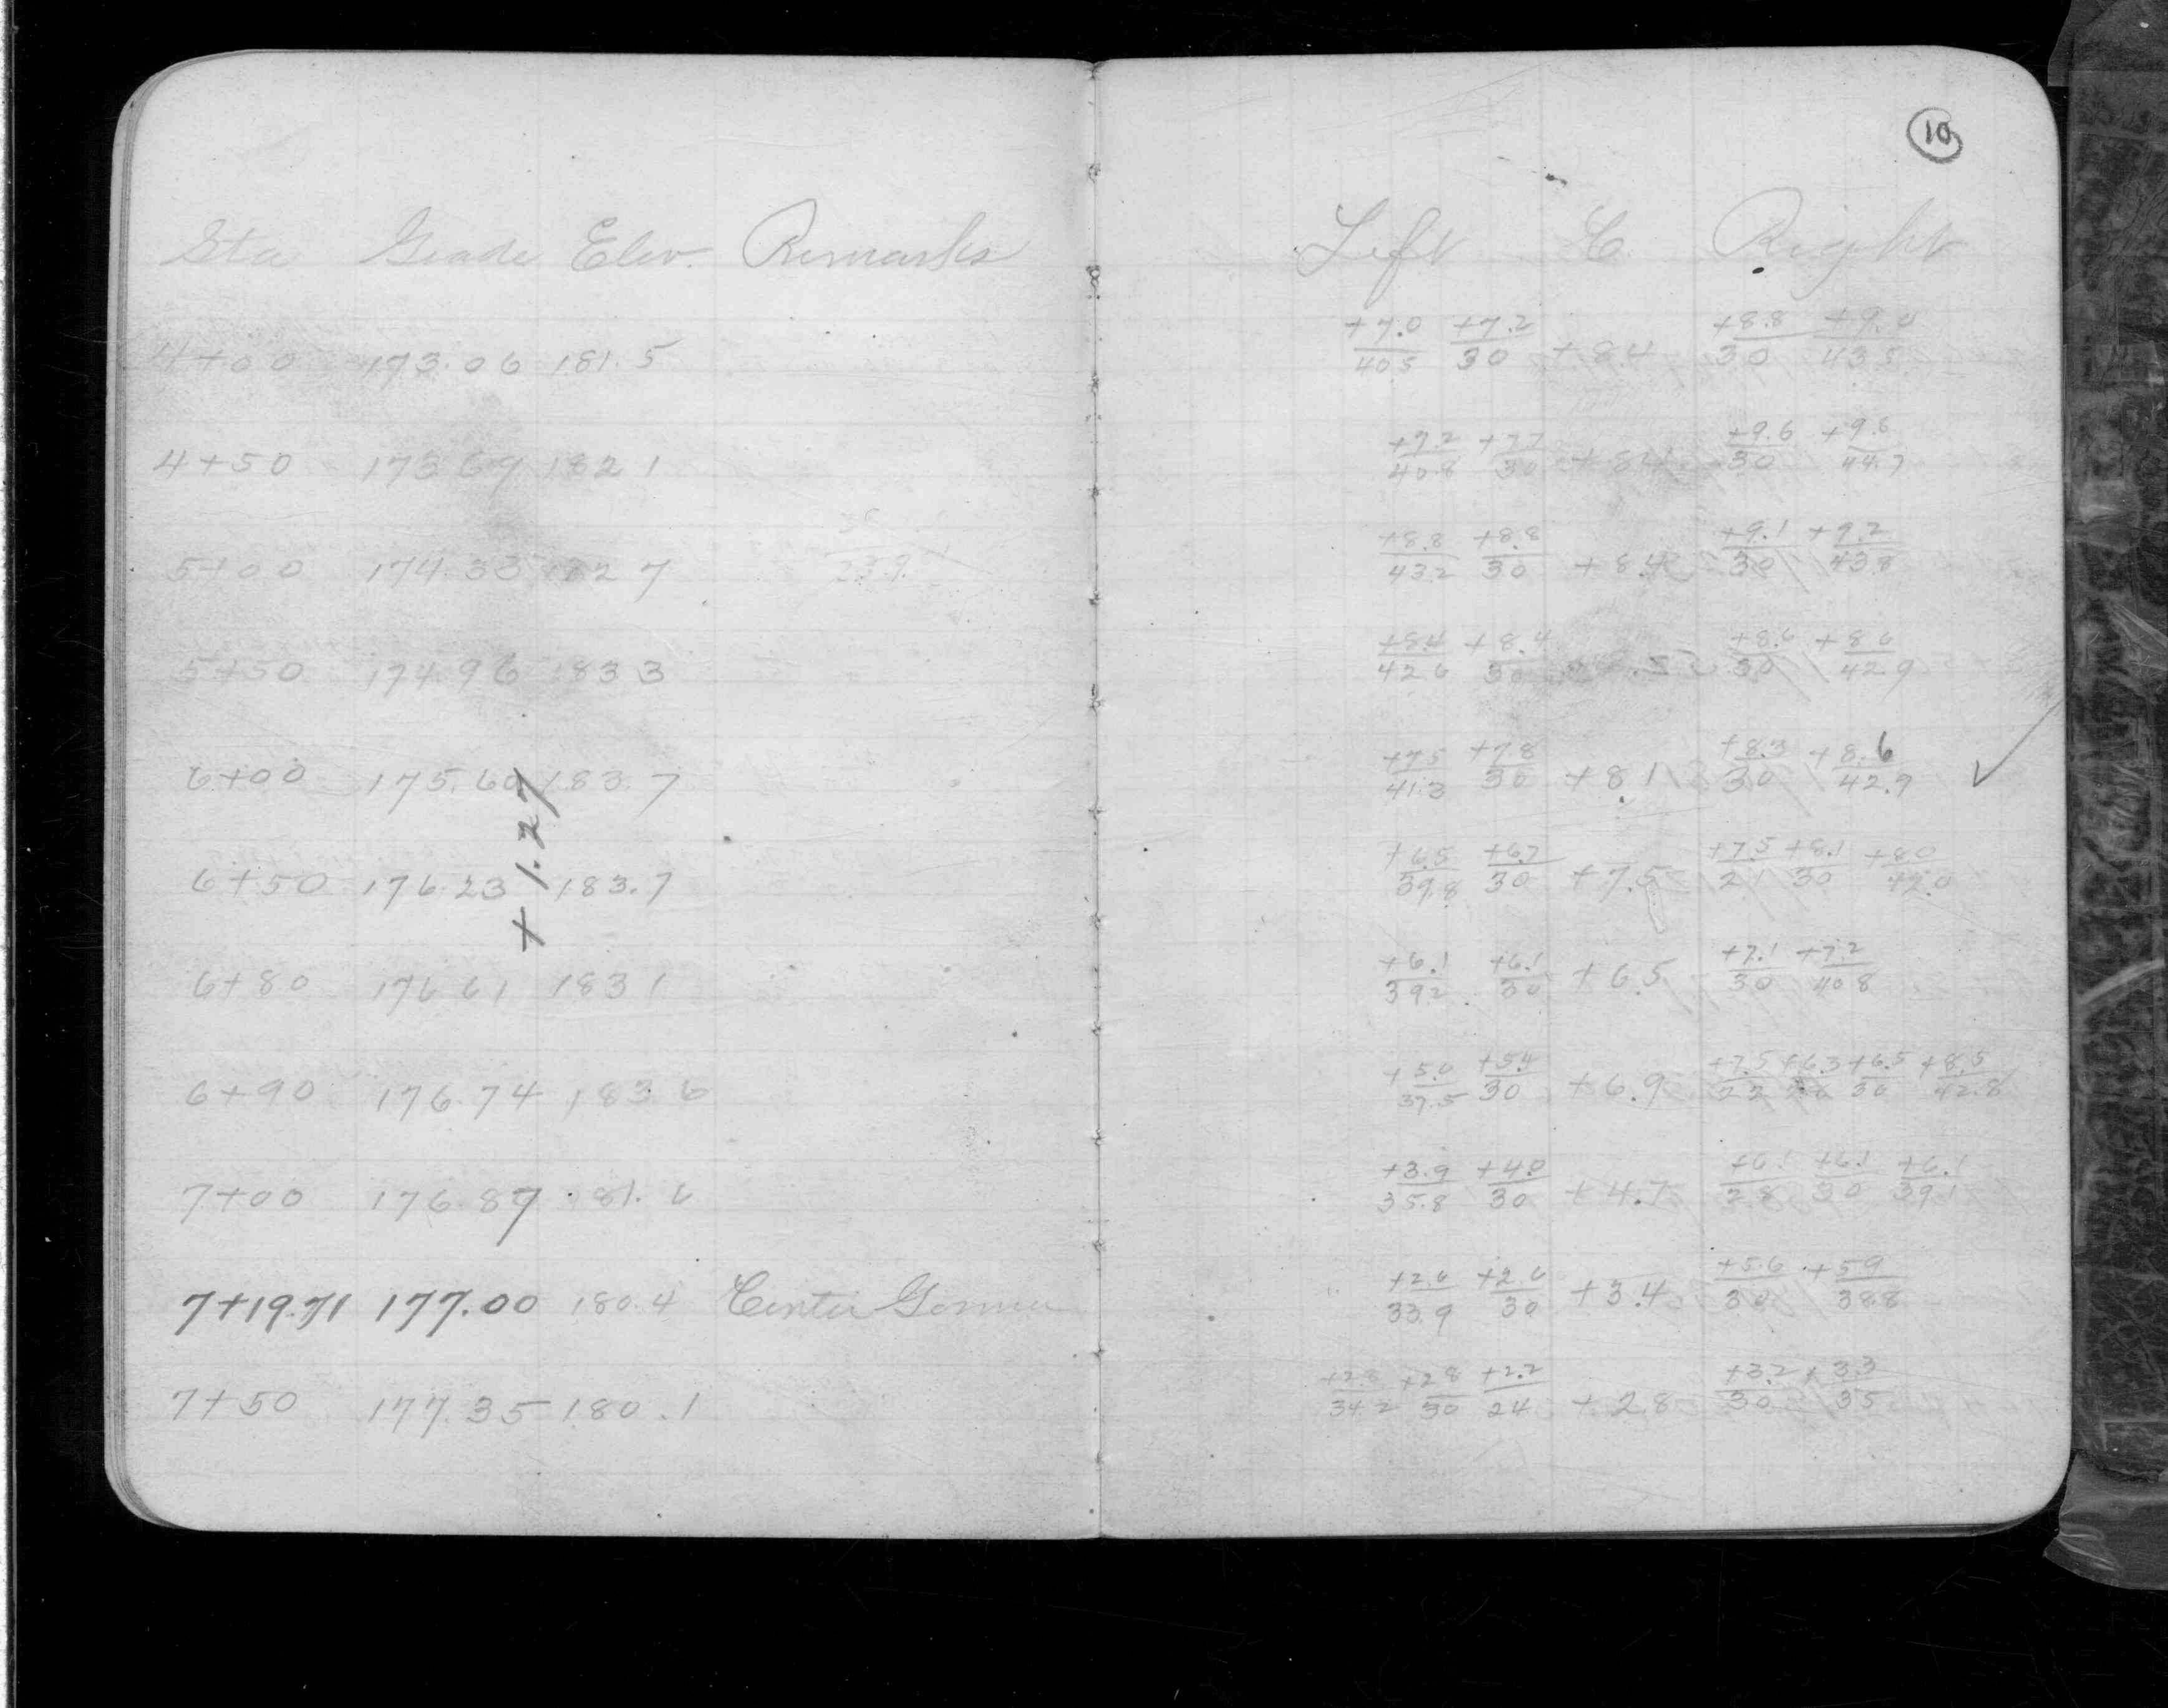 10
Sta Grade Elev. Remarks Left C. Right
4+00 173.06 181.5 +7.0/40.5 +7.2/30 +8.4 +8.8/30 +9.0/43.5
4+50 173.69 182.1 +7.2/40.8 +7.7/30 +8.4 +9.6/30 +9.6/44.7
5+00 174.33 182.7 +8.8/43.2 +8.8/30 +8.4 +9.1/30 +9.2/43.8
5+50 174.96 183.3 +8.4/42.6 +8.4/30 +8.6/30 +8.6/42.9
6+00 175.60 183.7 +7.5/41.3 +7.8/30 +8.1 +8.3/30 +8.6/42.9 ✓
+1.27
6+50 176.23 183.7 +6.5/39.8 +6.7/30 +7.5 +7.5/21 +8.1/30 +8.0/42.0
6+80 176.61 183.1 +6.1/39.2 +6.1/30 +6.5 +7.1/30 +7.2/40.8
6+90 176.74 183.6 +5.0/37.5 +5.4/30 +6.9 +7.5/22 +6.3/26 +6.5/30 +8.5/42.8
7+00 176.87 181.6 +3.9/35.8 +4.0/30 +4.7 +6.1/28 +6.1/30 +6.1/39.1
7+19.71 177.00 180.4 Center +2.6/33.9 +2.6/30 +3.4 +5.6/30 +5.9/38.8
7+50 177.35 180.1 +2.8/34.2 +2.8/30 +2.2/24 +2.8 +3.2/30 +3.3/35